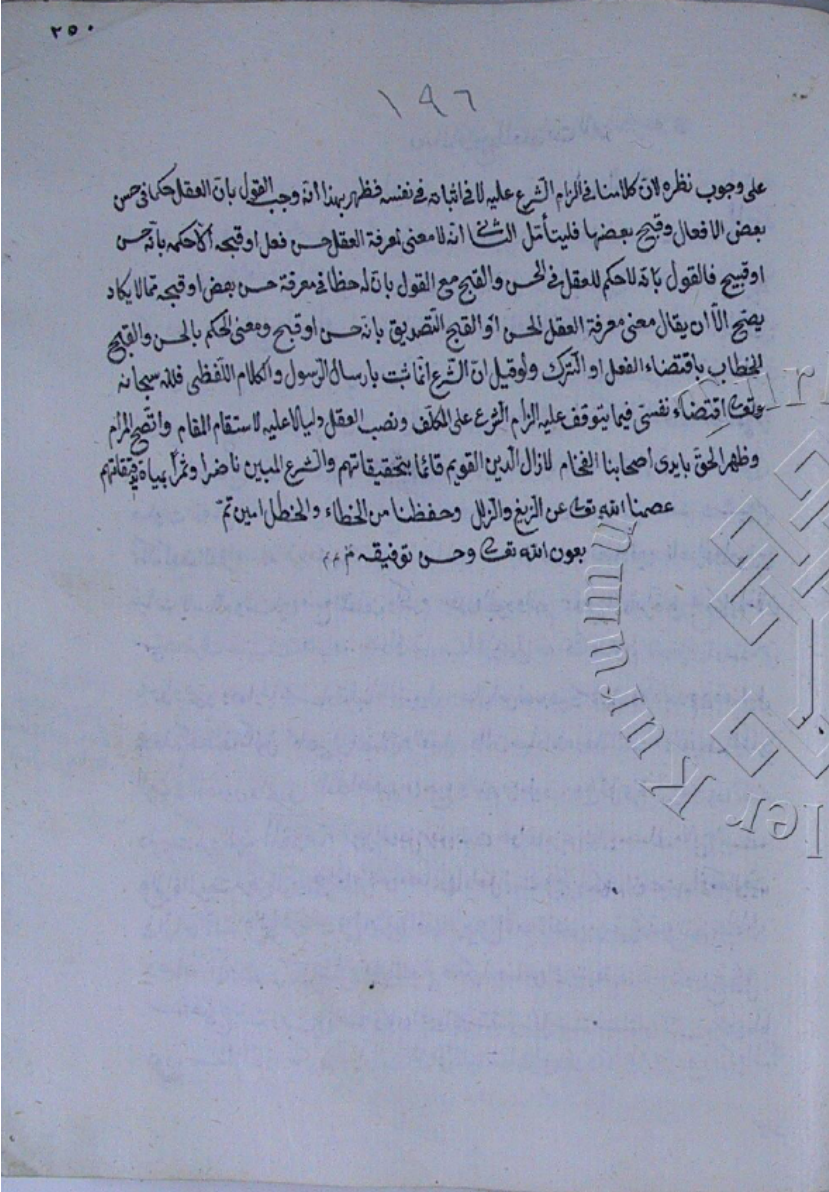 ٢٥٠
١٩٦
على وجوب نظره لان كلامنا في الزام الشرع عليه لا في اثباته في نفسه فظهر بهذا انه وجب القول بان العقل حكما في حسن
بعض الافعال وقبح بعضها فليتأمل الثاني انه لا معنى لمعرفة العقل حسن فعل او قبحه الا حكمه بانه حسن
او قبيح فالقول بانه لا حكم للعقل في الحسن والقبح مع القول بان له حظا في معرفة حسن بعض او قبحه مما لا يكاد
يصح الا ان يقال معنى معرفة العقل الحسن او القبح التصديق بانه حسن او قبح ومعنى الحكم بالحسن والقبح
الخطاب باقتضاء الفعل او الترك ولو قيل ان الشرع انما ثبت بارسال الرسول والكلام اللفظى فلله سبحانه
وتعالى اقتضاء نفسى فيما يتوقف عليه الزام الشرع على المكلف ونصب العقل دليلا عليه لاستقام المقام واتضح المرام
وظهر الحق بايدى اصحابنا الفخام لازال الدين القويم قائما بتحقيقاتهم والشرع المبين ناضرا بمياه تدقيقاتهم
عصمنا الله تعالى عن الزيغ والزلل وحفظنا من الخطاء والخطل امين تم
بعون الله تعالى وحسن توفيقه تم م م